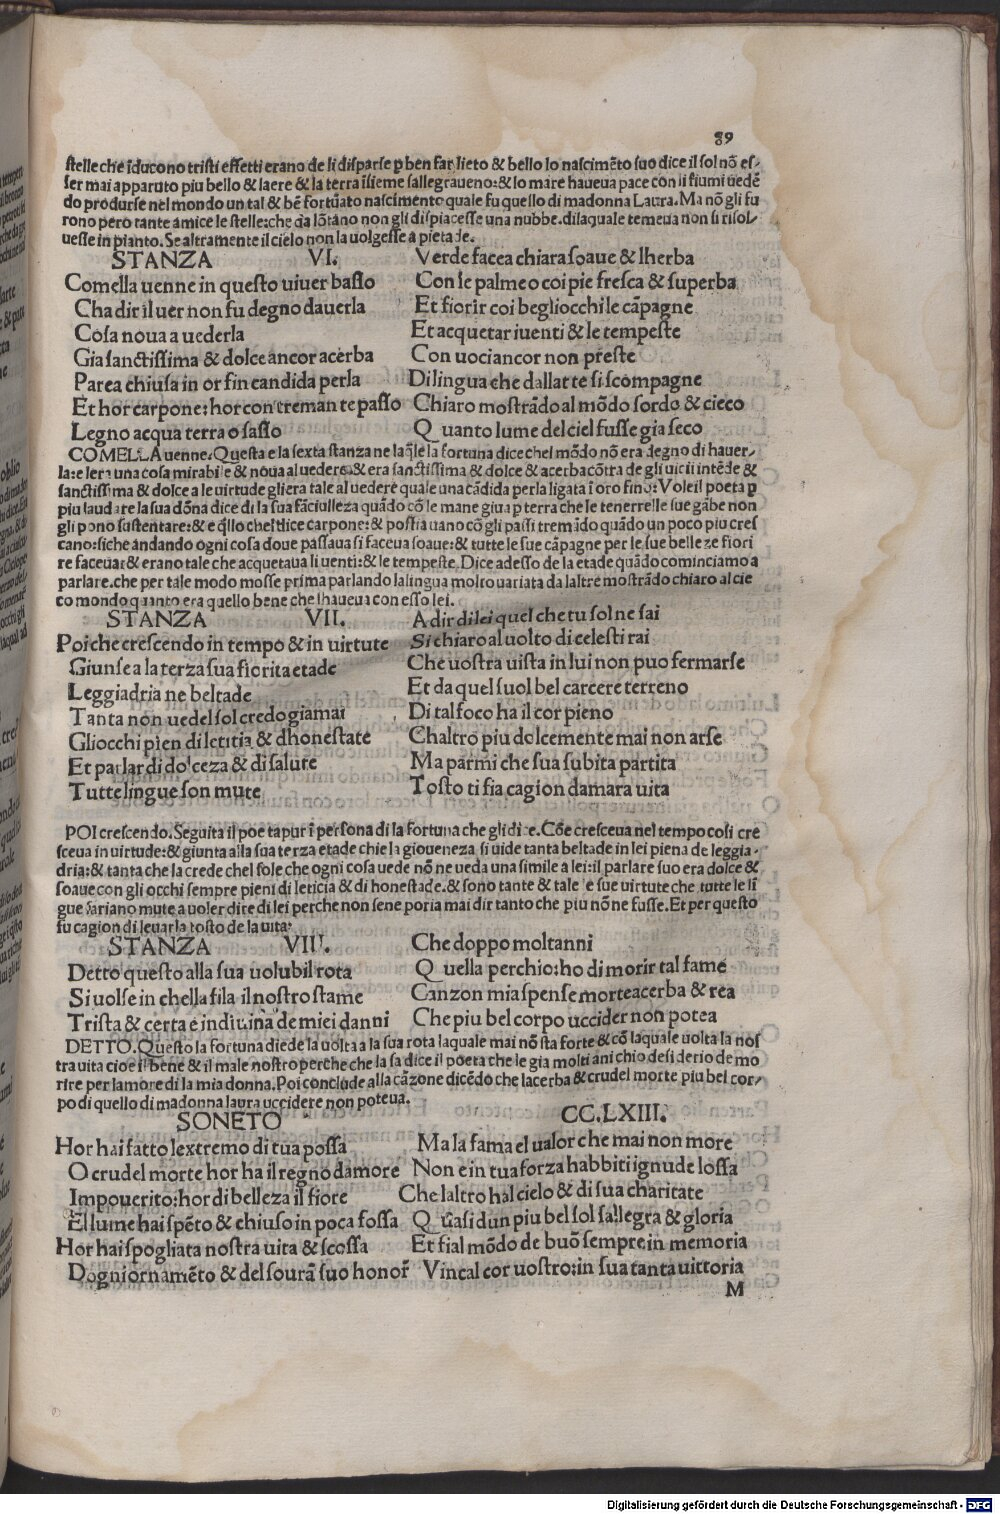 89
stelle che īducono tristi effetti erano de li disparse ꝑ ben far lieto & bello lo nascimēto suo dice il sol nō es-
ser mai apparuto piu bello & laere & la terra īsieme sallegraueno: & lo mare haueua pace con li fiumi uedē
do produrse nel mondo un tal & bē fortūato nascimento quale fu quello di madonna Laura. Ma nō gli fu
rono pero tante amice le stelle: che da lōtano non gli dispiacesse una nubbe. dilaquale temeua non si risol-
uesse in pianto. Se altramente il cielo non la uolgesse a pietade.
STANZA VI.
Comella uenne in questo uiuer basso
Cha dir il uer non fu degno dauerla
Cosa noua a uederla
Gia sanctissima & dolce ancor acerba
Parea chiusa in or fin candida perla
Et hor carpone: hor con tremante passo
Legno acqua terra o sasso
Verde facea chiara soaue & lherba
Con le palme o coi pie fresca & superba
Et fiorir coi begliocchi le cāpagne
Et acquetar i uenti & le tempeste
Con uoci ancor non preste
Di lingua che dal latte si scompagne
Chiaro mostrādo al mōdo sordo & cieco
Quanto lume del ciel fusse gia seco
COMELLA uenne. Questa e la sexta stanza ne laq̄le la fortuna dice chel mōdo nō era degno di hauer-
la: e lera una cosa mirabile & noua al uedere & era sanctissima & dolce & acerba cōtra de gli uicii intēde &
sanctissima & dolce a le uirtude gliera tale al uedere quale una cādida perla ligata ī oro fino: Vole il poeta ꝑ
piu laudare la sua dōna dice di la sua fāciulleza quādo cō le mane giu ꝑ terra che le tenerrelle sue gābe non
gli pono sustentare: & e q̄llo che si dice carpone: & postia uano cō gli passi tremādo quādo un poco piu cres
cano: siche andando ogni cosa doue passaua si faceua soaue: & tutte le sue cāpagne per le sue belleze fiori
re faceua: & erano tale che acquetaua li uenti: & le tempeste. Dice adesso de la etade quādo cominciamo a
parlare. che per tale modo mosse prima parlando la lingua molto uariata da laltre mostrādo chiaro al cie
co mondo quanto era quello bene che lhaueua con esso lei.
STANZA VII.
Poi che crescendo in tempo & in uirtute
Giunse a la terza sua fiorita etade
Leggiadria ne beltade
Tanta non uedel sol credo giamai
Gliocchi pien di letitia & dhonestate
Et parlar di dolceza & di salute
Tutte lingue son mute
A dir di lei quel che tu sol ne sai
Si chiaro al uolto di celesti rai
Che uostra uista in lui non puo fermarse
Et da quel suol bel carcere terreno
Di tal foco ha il cor pieno
Chaltro piu dolcemente mai non arse
Ma parmi che sua subita partita
Tosto ti fia cagion damara uita
POI crescendo. Seguita il poeta pur ī persona di la fortuna che gli dice. Cōe cresceua nel tempo cosi cre
sceua in uirtude: & giunta alla sua terza etade chie la gioueneza si uide tanta beltade in lei piena de leggia-
dria: & tanta che la crede chel sole che ogni cosa uede nō ne ueda una simile a lei: il parlare suo era dolce &
soaue con gli occhi sempre pieni di leticia & di honestade. & sono tante & tale le sue uirtute che tutte le lī
gue sariano mute a uoler dire di lei perche non sene poria mai dir tanto che piu nō ne fusse. Et per questo
fu cagion di leuarla tosto de la uita.
STANZA VIII.
Detto questo alla sua uolubil rota
Si uolse in chella fila il nostro stame
Trista & certa e indiuina de miei danni
Che doppo molt anni
Quella perchio: ho di morir tal fame
Canzon mia spense morte acerba & rea
Che piu bel corpo uccider non potea
DETTO. Questo la fortuna diede la uolta a la sua rota laquale mai nō sta forte & cō laquale uolta la nos
tra uita cioe il bene & il male nostro perche che la sa dice il poeta che le gia molti ani chio desiderio de mo
rire per lamore di la mia donna. Poi conclude alla cāzone dicēdo che lacerba & crudel morte piu bel cor-
po di quello di madonna laura uccidere non poteua.
SONETO CC.LXIII.
Hor hai fatto lextremo di tua possa
O crudel morte hor ha il regno damore
Impouerito: hor di belleza il fiore
El lume hai spēto & chiuso in poca fossa
Hor hai spogliata nostra uita & scossa
Dogni ornamēto & del sourā suo honor
Ma la fama el ualor che mai non more
Non e in tua forza habbiti ignude lossa
Che laltro hal cielo & di sua charitate
Quasi dun piu bel sol sallegra & gloria
Et fial mōdo de buō sempre in memoria
Vincal cor uostro: in sua tanta uittoria
M
Digitalisierung gefördert durch die Deutsche Forschungsgemeinschaft - DFG